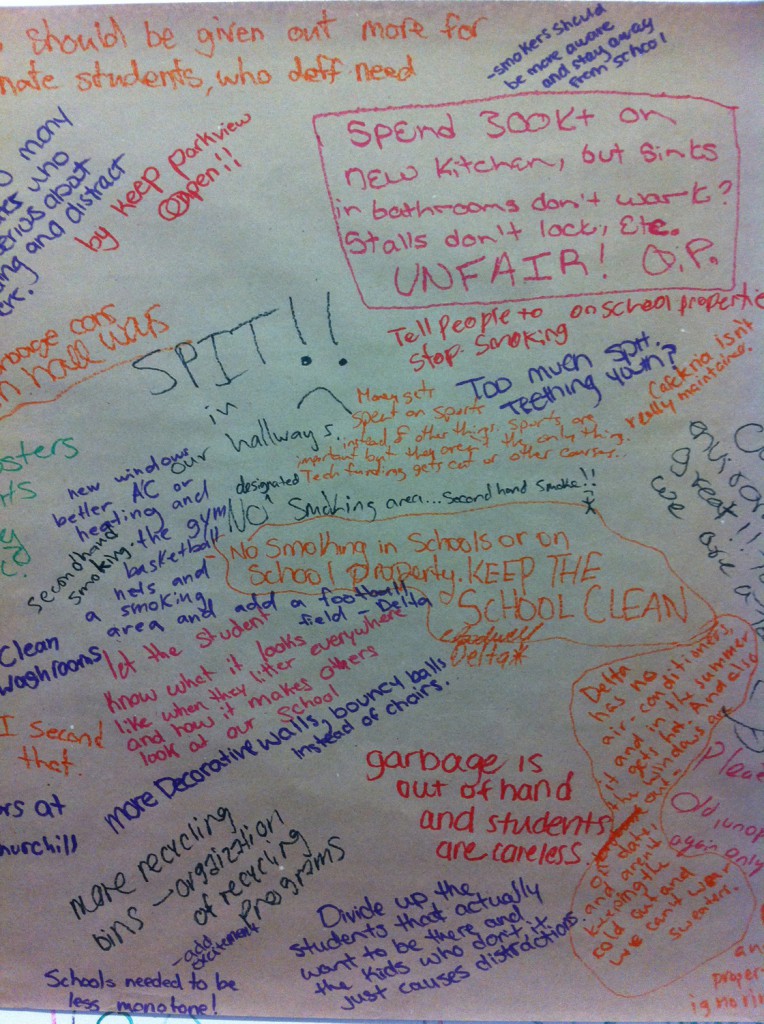 should be given out more for
nate students, who deff need
-smokers should
be more aware
and stay away
from school
many
who
erious about
ing and distract
by keep parkview
Open!!
Spend 300K+ on
new kitchen, but sinks
in bathrooms don't work?
Stalls don't lock, Etc.
UNFAIR! O.P.
Tell People to on school propertie
stop smoking
garbage cans
in hall ways
SPIT!!
in
our hallways.
Too much spit.
Teething youth?
Cafeteria Isnt
really maintained.
Money gets
spent on sports
instead of other things. Sports are
important but they aren't the only thing.
Tech funding gets cut or other courses..
osters
new windows
better AC or
heating and
the gym
basketball
nets and
a smoking
area and add a football
field - Delta
secondhand
smoking.
designated
NO ^ Smoking area... Second hand smoke!!
No Smoking in Schools or on
School Property. KEEP THE
SCHOOL CLEAN
Delta*
environ
great!!
we are a
Clean
washrooms
let the student
know what it looks
like when they litter everywhere
and how it makes others
look at our school
I second
that.
more Decorative walls, bouncy balls
instead of chairs.
rs at
hurchill
Delta
has no
air-conditioners,
it and in the summer
gets hot. And also
the windows are
out-
of date,
and aren't
keeping the
cold out and
we can't wear
sweaters.
garbage is
out of hand
and students
are careless.
Old, unop
again only
more recycling
bins - orgnization
of recycling
programs
-add
excitement
Schools needed to be
less monotone!
Divide up, the
students that actually
want to be there and
the kids who don't, it
just causes distractions.
an
proper
ignorin